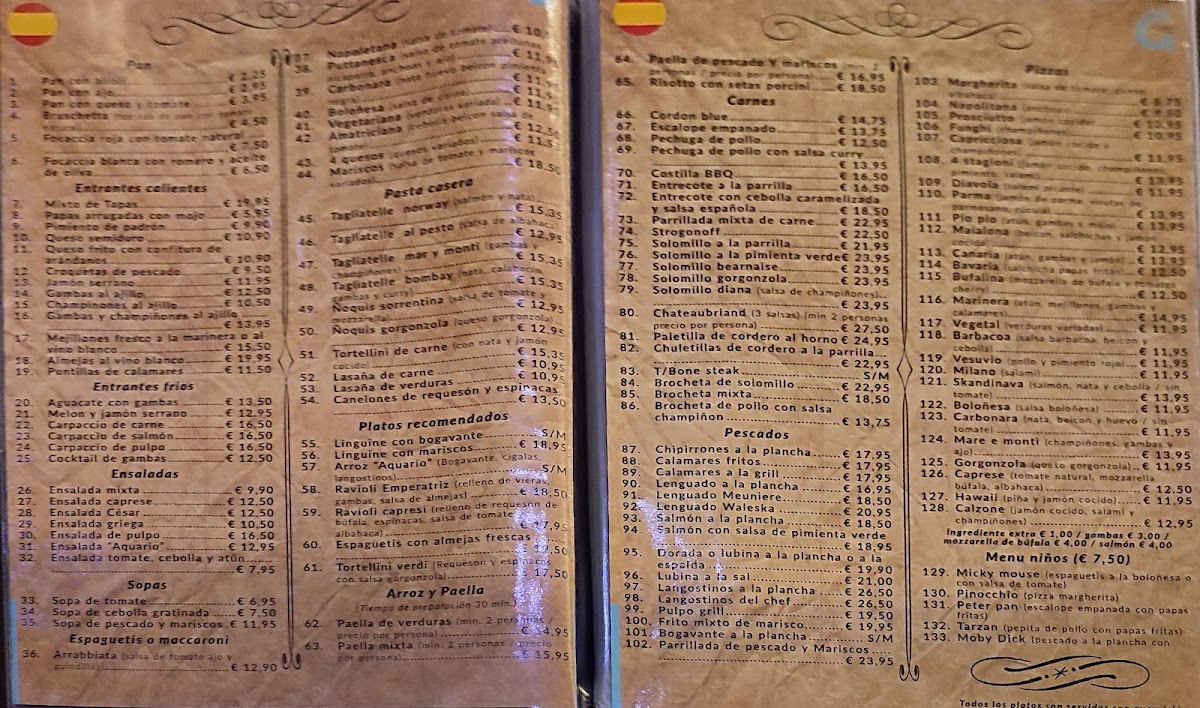 Pan
1. Pan con alioli € 2,25
2. Pan con ajo € 2,95
3. Pan con queso y tomate € 3,95
4. Bruschetta
€ 4,50
5. Focaccia roja con tomate natural
€ 7,50
6. Focaccia blanca con romero y aceite
de oliva € 6,50
Entrantes calientes
7. Mixto de Tapas € 19,95
8. Papas arrugadas con mojo € 5,95
9. Pimiento de padrón € 9,90
10. Queso semiduro € 10,90
11. Queso frito con confitura de
arándanos € 10,90
12. Croquetas de pescado € 9,50
13. Jamón serrano € 11,95
14. Gambas al ajillo € 12,50
15. Champiñones al ajillo € 10,50
16. Gambas y champiñones al ajillo
€ 13,95
17. Mejillones fresco a la marinera o al
vino blanco € 15,50
18. Almejas al vino blanco € 19,95
19. Puntillas de calamares € 11,50
Entrantes fríos
20. Aguacate con gambas € 13,50
21. Melon y jamón serrano € 12,95
22. Carpaccio de carne € 16,50
23. Carpaccio de salmón € 16,50
24. Carpaccio de pulpo € 16,50
25. Cocktail de gambas € 12,50
Ensaladas
26. Ensalada mixta € 9,90
27. Ensalada caprese € 12,50
28. Ensalada César € 12,50
29. Ensalada griega € 10,50
30. Ensalada de pulpo € 16,50
31. Ensalada "Aquario" € 12,95
32. Ensalada tomate, cebolla y atún
€ 7,95
Sopas
33. Sopa de tomate € 6,95
34. Sopa de cebolla gratinada € 7,50
35. Sopa de pescado y mariscos € 11,95
Espaguetis o maccaroni
36. Arrabbiata (salsa de tomate ajo y
guindilla) € 12,90
37. Napoletana (salsa de tomate) € 10,
38. Puttanesca
39. Carbonara
40. Boloñesa (salsa de carne)
41. Vegetariana (verdura variada)
42. Amatriciana (cebolla beicon salsa de
tomate) € 12,50
43. 4 quesos (quesos variados)
44. Mariscos (salsa de tomate y mariscos
variados) € 18,50
Pasta casera
45. Tagliatelle norway (salmón y nata)
€ 15,35
46. Tagliatelle al pesto (salsa de albahaca)
€ 12,95
47. Tagliatelle mar y monti (gambas y
champiñones) € 15,35
48. Tagliatelle bombay (nata, calabacín,
gambas y curry) € 15,35
49. Ñoquis sorrentina (salsa de tomate y
mozzarella) € 12,95
50. Ñoquis gorgonzola (queso gorgonzola)
€ 12,95
51. Tortellini de carne (con nata y jamón
cocido) € 15,35
52. Lasaña de carne € 10,95
53. Lasaña de verduras € 10,95
54. Canelones de requesón y espinacas
€ 13,50
Platos recomendados
55. Linguine con bogavante S/M
56. Linguine con mariscos € 18,95
57. Arroz "Aquario" (Bogavante, cigalas,
langostinos) S/M
58. Ravioli Emperatriz (relleno de vieras,
gambas, salsa de almejas) € 18,50
59. Ravioli capresi (relleno de requesón de
búfala, espinacas, salsa de tomate
albahaca) 17,95
60. Espaguetis con almejas frescas
61. Tortellini verdi (Requesón y espinacas
con salsa gorgonzola) 17,50
Arroz y Paella
(Tiempo de preparación 30 min.)
62. Paella de verduras (min. 2 personas /
precio por persona) € 14,95
63. Paella mixta (min. 2 personas / precio
por persona) € 15,95
64. Paella de pescado y mariscos (min 2
personas / precio por persona) € 16,95
65. Risotto con setas porcini € 18,50
Carnes
66. Cordon blue € 14,75
67. Escalope empanado € 13,75
68. Pechuga de pollo € 12,50
69. Pechuga de pollo con salsa curry
€ 13,95
70. Costilla BBQ € 16,50
71. Entrecote a la parrilla € 16,50
72. Entrecote con cebolla caramelizada
y salsa española € 18,50
73. Parrillada mixta de carne € 22,95
74. Strogonoff € 22,50
75. Solomillo a la parrilla € 21,95
76. Solomillo a la pimienta verde € 23,95
77. Solomillo bearnaise € 23,95
78. Solomillo gorgonzola € 23,95
79. Solomillo diana (salsa de champiñones)
€ 23,95
80. Chateaubriand (3 salsas) (min 2 personas
precio por persona) € 27,50
81. Paletilla de cordero al horno € 24,95
82. Chuletillas de cordero a la parrilla
€ 22,95
83. T/Bone steak S/M
84. Brocheta de solomillo € 22,95
85. Brocheta mixta € 18,50
86. Brocheta de pollo con salsa
champiñon € 13,75
Pescados
87. Chipirrones a la plancha € 17,95
88. Calamares fritos € 17,95
89. Calamares a la grill € 17,95
90. Lenguado a la plancha € 16,95
91. Lenguado Meuniere € 18,50
92. Lenguado Waleska € 20,95
93. Salmón a la plancha € 18,50
94. Salmón con salsa de pimienta verde
€ 18,95
95. Dorada o lubina a la plancha o a la
espalda € 19,90
96. Lubina a la sal € 21,00
97. Langostinos a la plancha € 26,50
98. Langostinos del chef € 26,50
99. Pulpo grill € 19,50
100. Frito mixto de marisco € 19,95
101. Bogavante a la plancha S/M
102. Parrillada de pescado y Mariscos
€ 23,95
Pizzas
103. Margherita
€ 8,75
104. Napolitana € 9,50
105. Prosciutto € 10,95
106. Funghi € 10,95
107. Capricciosa (jamón cocido y
€ 11,95
108. 4 stagioni
109. Diavola (salami € 13,95
110. Parma € 11,95
€ 13,95
111. Pio pio € 13,95
112. Maialona (beicon, salchichas y jamón
cocido) € 12,95
113. Canaria (atún, gambas € 13,95
114. Bavaria (salchicha papas fritas) € 12,50
115. Bufalina (mozzarella de búfala, tomates
cherry) € 12,50
116. Marinera (atún, mejillones, gambas,
calamares) € 14,95
117. Vegetal (verduras variadas) € 11,95
118. Barbacoa (salsa barbacoa, beicon y
cebolla) € 11,95
119. Vesuvio (pollo y pimiento rojo) € 11,95
120. Milano (salami) € 11,95
121. Skandinava (salmón, nata y cebolla / sin
tomate) € 13,95
122. Boloñesa (salsa boloñesa) € 11,95
123. Carbonara (nata, beicon y huevo / sin
tomate) € 11,95
124. Mare e monti (champiñones, gambas y
ajo) € 13,95
125. Gorgonzola (queso gorgonzola) € 11,95
126. Caprese (tomate natural, mozzarella
búfala, albahaca) € 12,50
127. Hawaii (piña y jamón cocido) € 11,95
128. Calzone (jamón cocido, salami y
champiñones) € 12,95
Ingrediente extra € 1,00 / gambas € 3,00 /
mozzarella de búfala € 4,00 / salmón € 4,00
Menu niños (€ 7,50)
129. Micky mouse (espaguetis a la boloñesa o
con salsa de tomate)
130. Pinocchio (pizza margherita)
131. Peter pan (escalope empanada con papas
fritas)
132. Tarzan (pepita de pollo con papas fritas)
133. Moby Dick (pescado a la plancha con
Todos los platos son servidos con